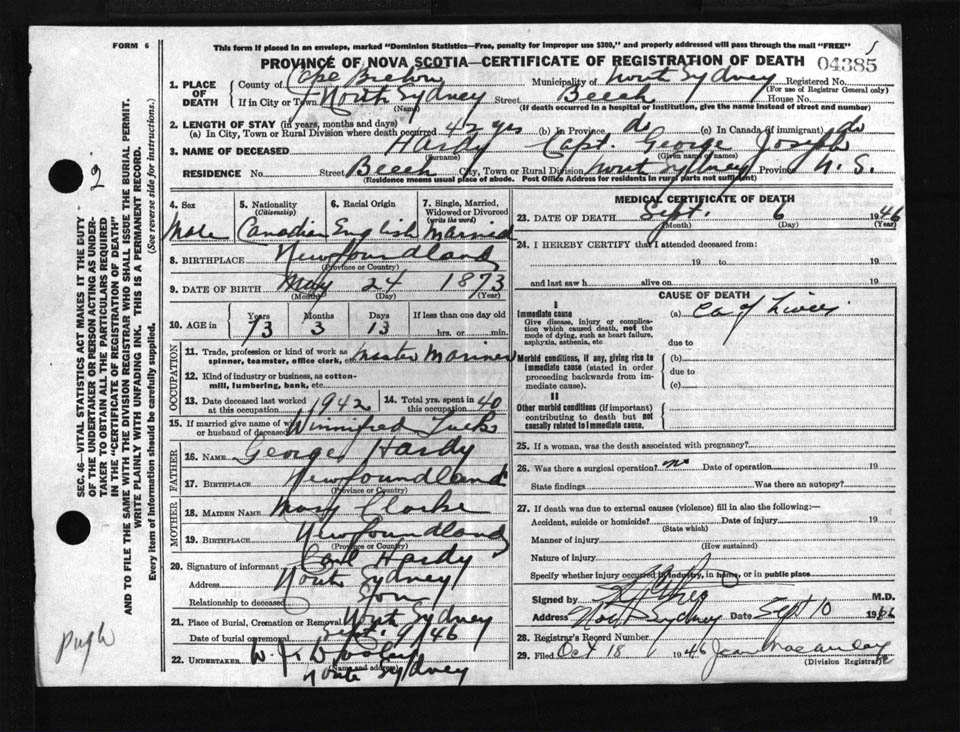 FORM 6
This form if placed in an envelope, marked "Dominion Statistics—Free, penalty for improper use $300," and properly addressed will pass through the mail "FREE"
PROVINCE OF NOVA SCOTIA—CERTIFICATE OF REGISTRATION OF DEATH
04385
1. PLACE OF DEATH County of Cape Breton Municipality of North Sydney Registered No.
(For use of Registrar General only)
If in City or Town North Sydney Street Beech House No.
(Name) (If death occurred in a hospital or institution, give the name instead of street and number)
2. LENGTH OF STAY (in years, months and days)
(a) In City, Town or Rural Division where death occurred 42 yrs (b) In Province do (c) In Canada (if immigrant) do
3. NAME OF DECEASED Hardy Capt. George Joseph
(Surname) (Given name or names)
RESIDENCE No. Street Beech City, Town or Rural Division North Sydney Province N.S.
(Residence means usual place of abode. Post Office Address for residents in rural parts not sufficient)
4. Sex Male
5. Nationality (Citizenship) Canadian
6. Racial Origin English
7. Single, Married, Widowed or Divorced (write the word) Married
8. BIRTHPLACE Newfoundland
(Province or Country)
9. DATE OF BIRTH May 24 1873
(Month) (Day) (Year)
10. AGE in Years 73 Months 3 Days 13 If less than one day old hrs. or min.
OCCUPATION
11. Trade, profession or kind of work as spinner, teamster, office clerk, etc. Master Mariner
12. Kind of industry or business, as cotton-mill, lumbering, bank, etc.
13. Date deceased last worked at this occupation 1942
14. Total yrs. spent in this occupation 40
15. If married give name of wife or husband of deceased Winnifred
FATHER
16. NAME George Hardy
17. BIRTHPLACE Newfoundland
(Province or Country)
MOTHER
18. MAIDEN NAME Mary Clarke
19. BIRTHPLACE Newfoundland
(Province or Country)
20. Signature of informant Carl Hardy
Address North Sydney
Relationship to deceased Son
21. Place of Burial, Cremation or Removal North Sydney
Date of burial or removal Sept. 9/46
22. UNDERTAKER W.
(Name and address)
North Sydney
MEDICAL CERTIFICATE OF DEATH
23. DATE OF DEATH Sept. 6 1946
(Month) (Day) (Year)
24. I HEREBY CERTIFY that I attended deceased from:
19 to 19
and last saw h alive on 19
CAUSE OF DEATH
I
Immediate cause
Give disease, injury or complication which caused death, not the mode of dying, such as heart failure, asphyxia, asthenia, etc.
(a) Ca of Liver
due to
Morbid conditions, if any, giving rise to immediate cause (stated in order proceeding backwards from immediate cause).
(b)
due to
(c)
II
Other morbid conditions (if important) contributing to death but not causally related to immediate cause.
25. If a woman, was the death associated with pregnancy?
26. Was there a surgical operation? no Date of operation 19
State findings Was there an autopsy?
27. If death was due to external causes (violence) fill in also the following:—
Accident, suicide or homicide? Date of injury 19
(State which)
Manner of injury
(How sustained)
Nature of injury
Specify whether injury occurred in industry, in home, or in public place
Signed by M.D.
Address North Sydney Date Sept 10 1946
28. Registrar's Record Number
29. Filed Oct 18 1946
(Division Registrar)
SEC. 46—VITAL STATISTICS ACT MAKES IT THE DUTY
OF THE UNDERTAKER OR PERSON ACTING AS UNDER-
TAKER TO OBTAIN ALL THE PARTICULARS REQUIRED
IN THE "CERTIFICATE OF REGISTRATION OF DEATH"
AND TO FILE THE SAME WITH THE DIVISION REGISTRAR WHO SHALL ISSUE THE BURIAL PERMIT.
WRITE PLAINLY WITH UNFADING INK. THIS IS A PERMANENT RECORD.
Every item of Information should be carefully supplied. (See reverse side for instructions.)
2
Pugh